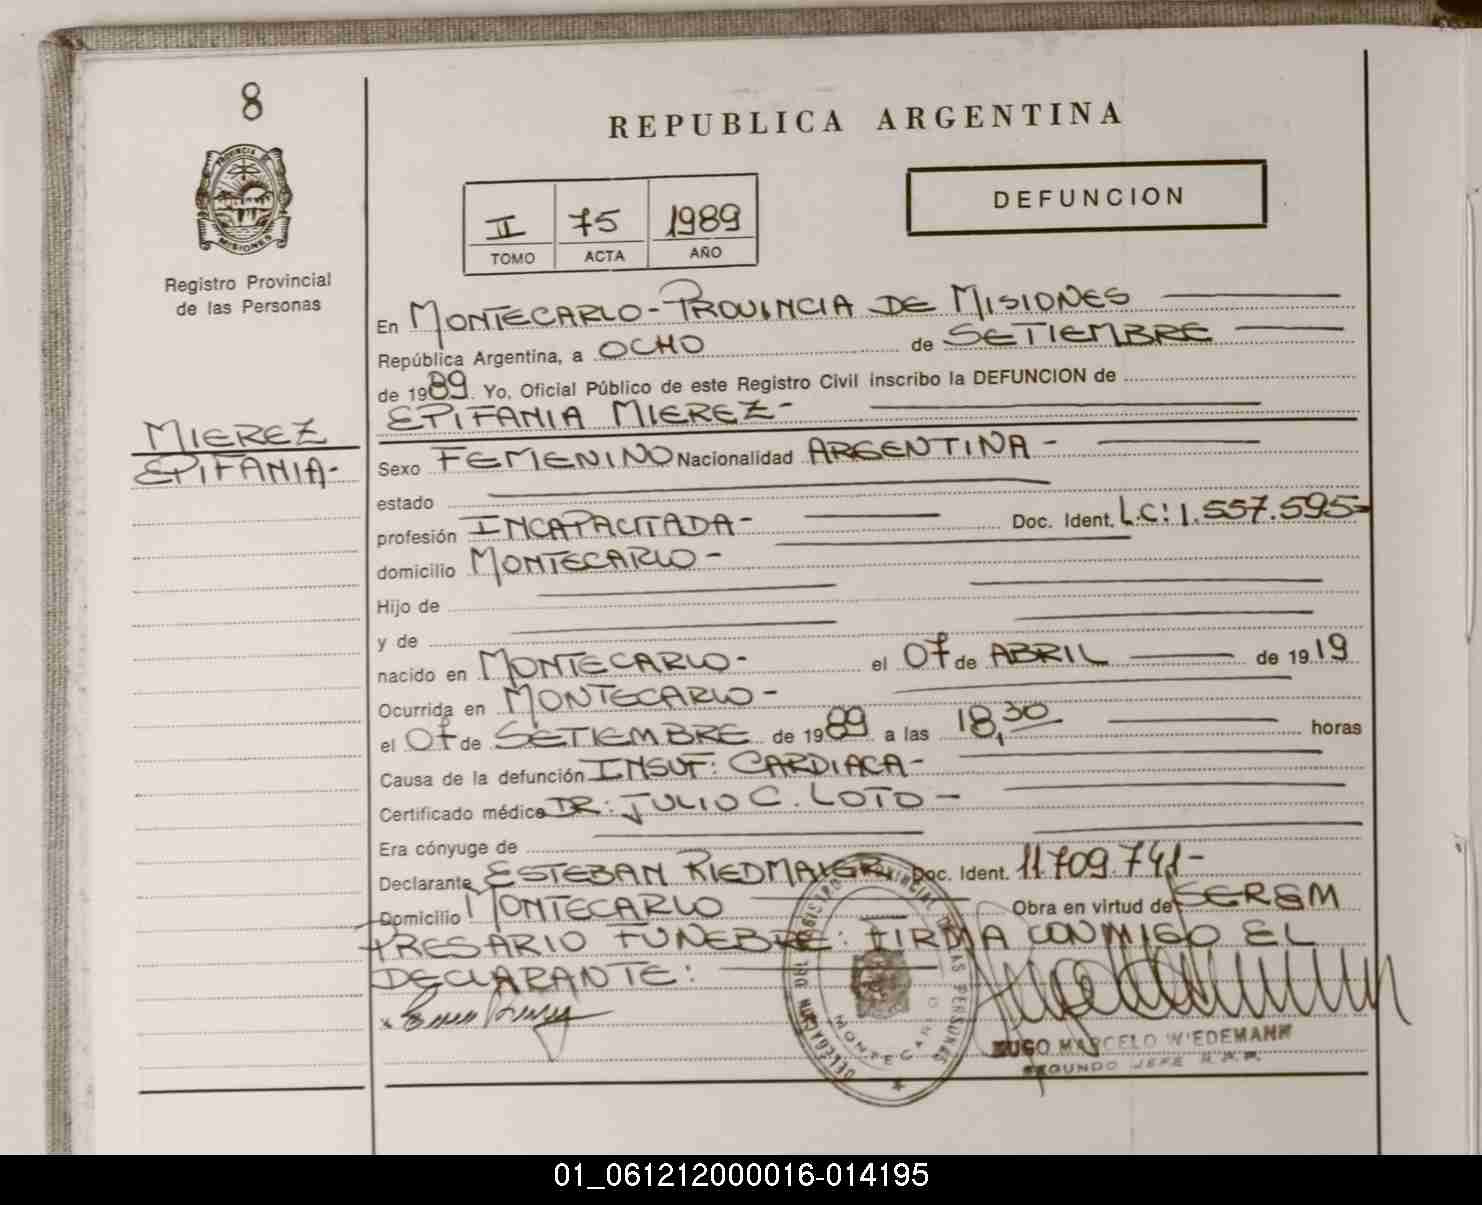 8
PROVINCIA DE
MISIONES
Registro Provincial
de las Personas
MIEREZ
EPIFANIA-
REPUBLICA ARGENTINA
II 75 1989
TOMO ACTA AÑO
DEFUNCION
En MONTECARLO-PROVINCIA DE MISIONES
República Argentina, a OCHO de SETIEMBRE
de 1989. Yo, Oficial Público de este Registro Civil inscribo la DEFUNCION de
EPIFANIA MIEREZ-
Sexo FEMENINO Nacionalidad ARGENTINA-
estado
profesión INCAPACITADA- Doc. Ident. L.C: 1.557.595-
domicilio MONTECARLO-
Hijo de
y de
nacido en MONTECARLO- el 07 de ABRIL de 1919
Ocurrida en MONTECARLO-
el 07 de SETIEMBRE de 1989 a las 18,30 horas
Causa de la defunción INSUF: CARDIACA-
Certificado médico DR: JULIO C. LOTO-
Era cónyuge de
Declarante ESTEBAN RIEDMAIER Doc. Ident. 11.709.741-
Domicilio MONTECARLO Obra en virtud de SER EM
PRESARIO FUNEBRE: FIRMA CONMIGO EL
DECLARANTE:
DELEGACION DEL REGISTRO PROVINCIAL DE LAS PERSONAS
MONTECARLO
HUGO MARCELO WIEDEMANN
SEGUNDO JEFE R.P.P.
01_061212000016-014195